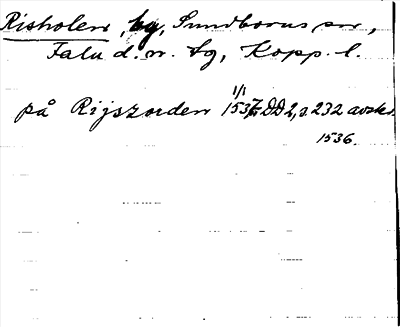 Risholen, by, Sundborns sn,
Falu d. n. tg, Kopp. l.
på Rijszorden 1/1 1537 DD 2, s. 232 avskr.
1536.